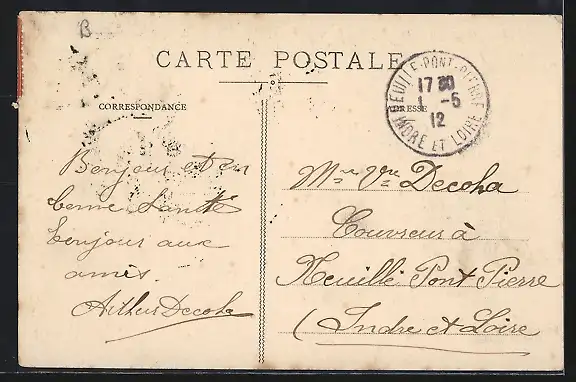 B
CARTE POSTALE
CORRESPONDANCE
ADRESSE
NEUILLÉ-PONT-PIERRE
17 30
1 -5
12
INDRE ET LOIRE
Bonjour et en
bonne Santté
bonjour aux
amis.
Arthur Decoha
Mme Vve Decoha
Couvreur à
Neuillé Pont Pierre
(Indre et Loire